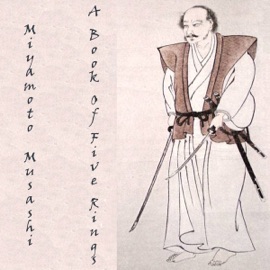 Miyamoto Musashi
A Book of Five Rings